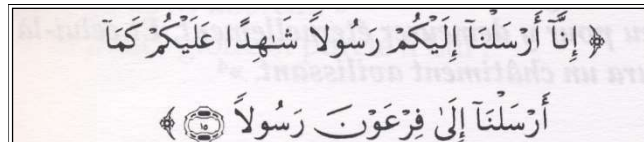 ﴿ إِنَّآ أَرْسَلْنَآ إِلَيْكُمْ رَسُولاً شَـٰهِدًا عَلَيْكُمْ كَمَآ
أَرْسَلْنَآ إِلَىٰ فِرْعَوْنَ رَسُولاً ۝١٥ ﴾